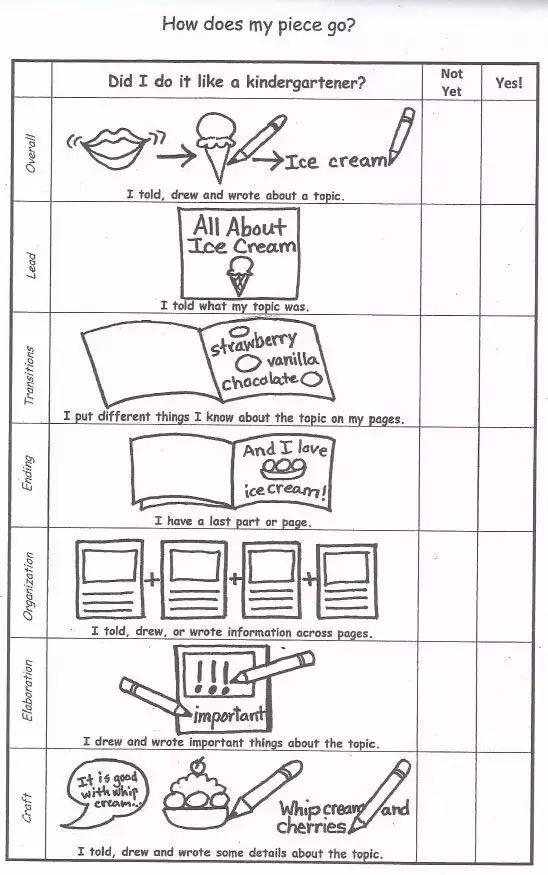 How does my piece go?
Did I do it like a kindergartener?
Not
Yet
Yes!
Overall
Ice cream
I told, drew and wrote about a topic.
Lead
All About
Ice Cream
I told what my topic was.
Transitions
strawberry
vanilla
chocolate
I put different things I know about the topic on my pages.
Ending
And I love
ice cream!
I have a last part or page.
Organization
+ + +
I told, drew, or wrote information across pages.
Elaboration
!!!
important
I drew and wrote important things about the topic.
Craft
It is good
with whip
cream...
Whip cream and
cherries
I told, drew and wrote some details about the topic.